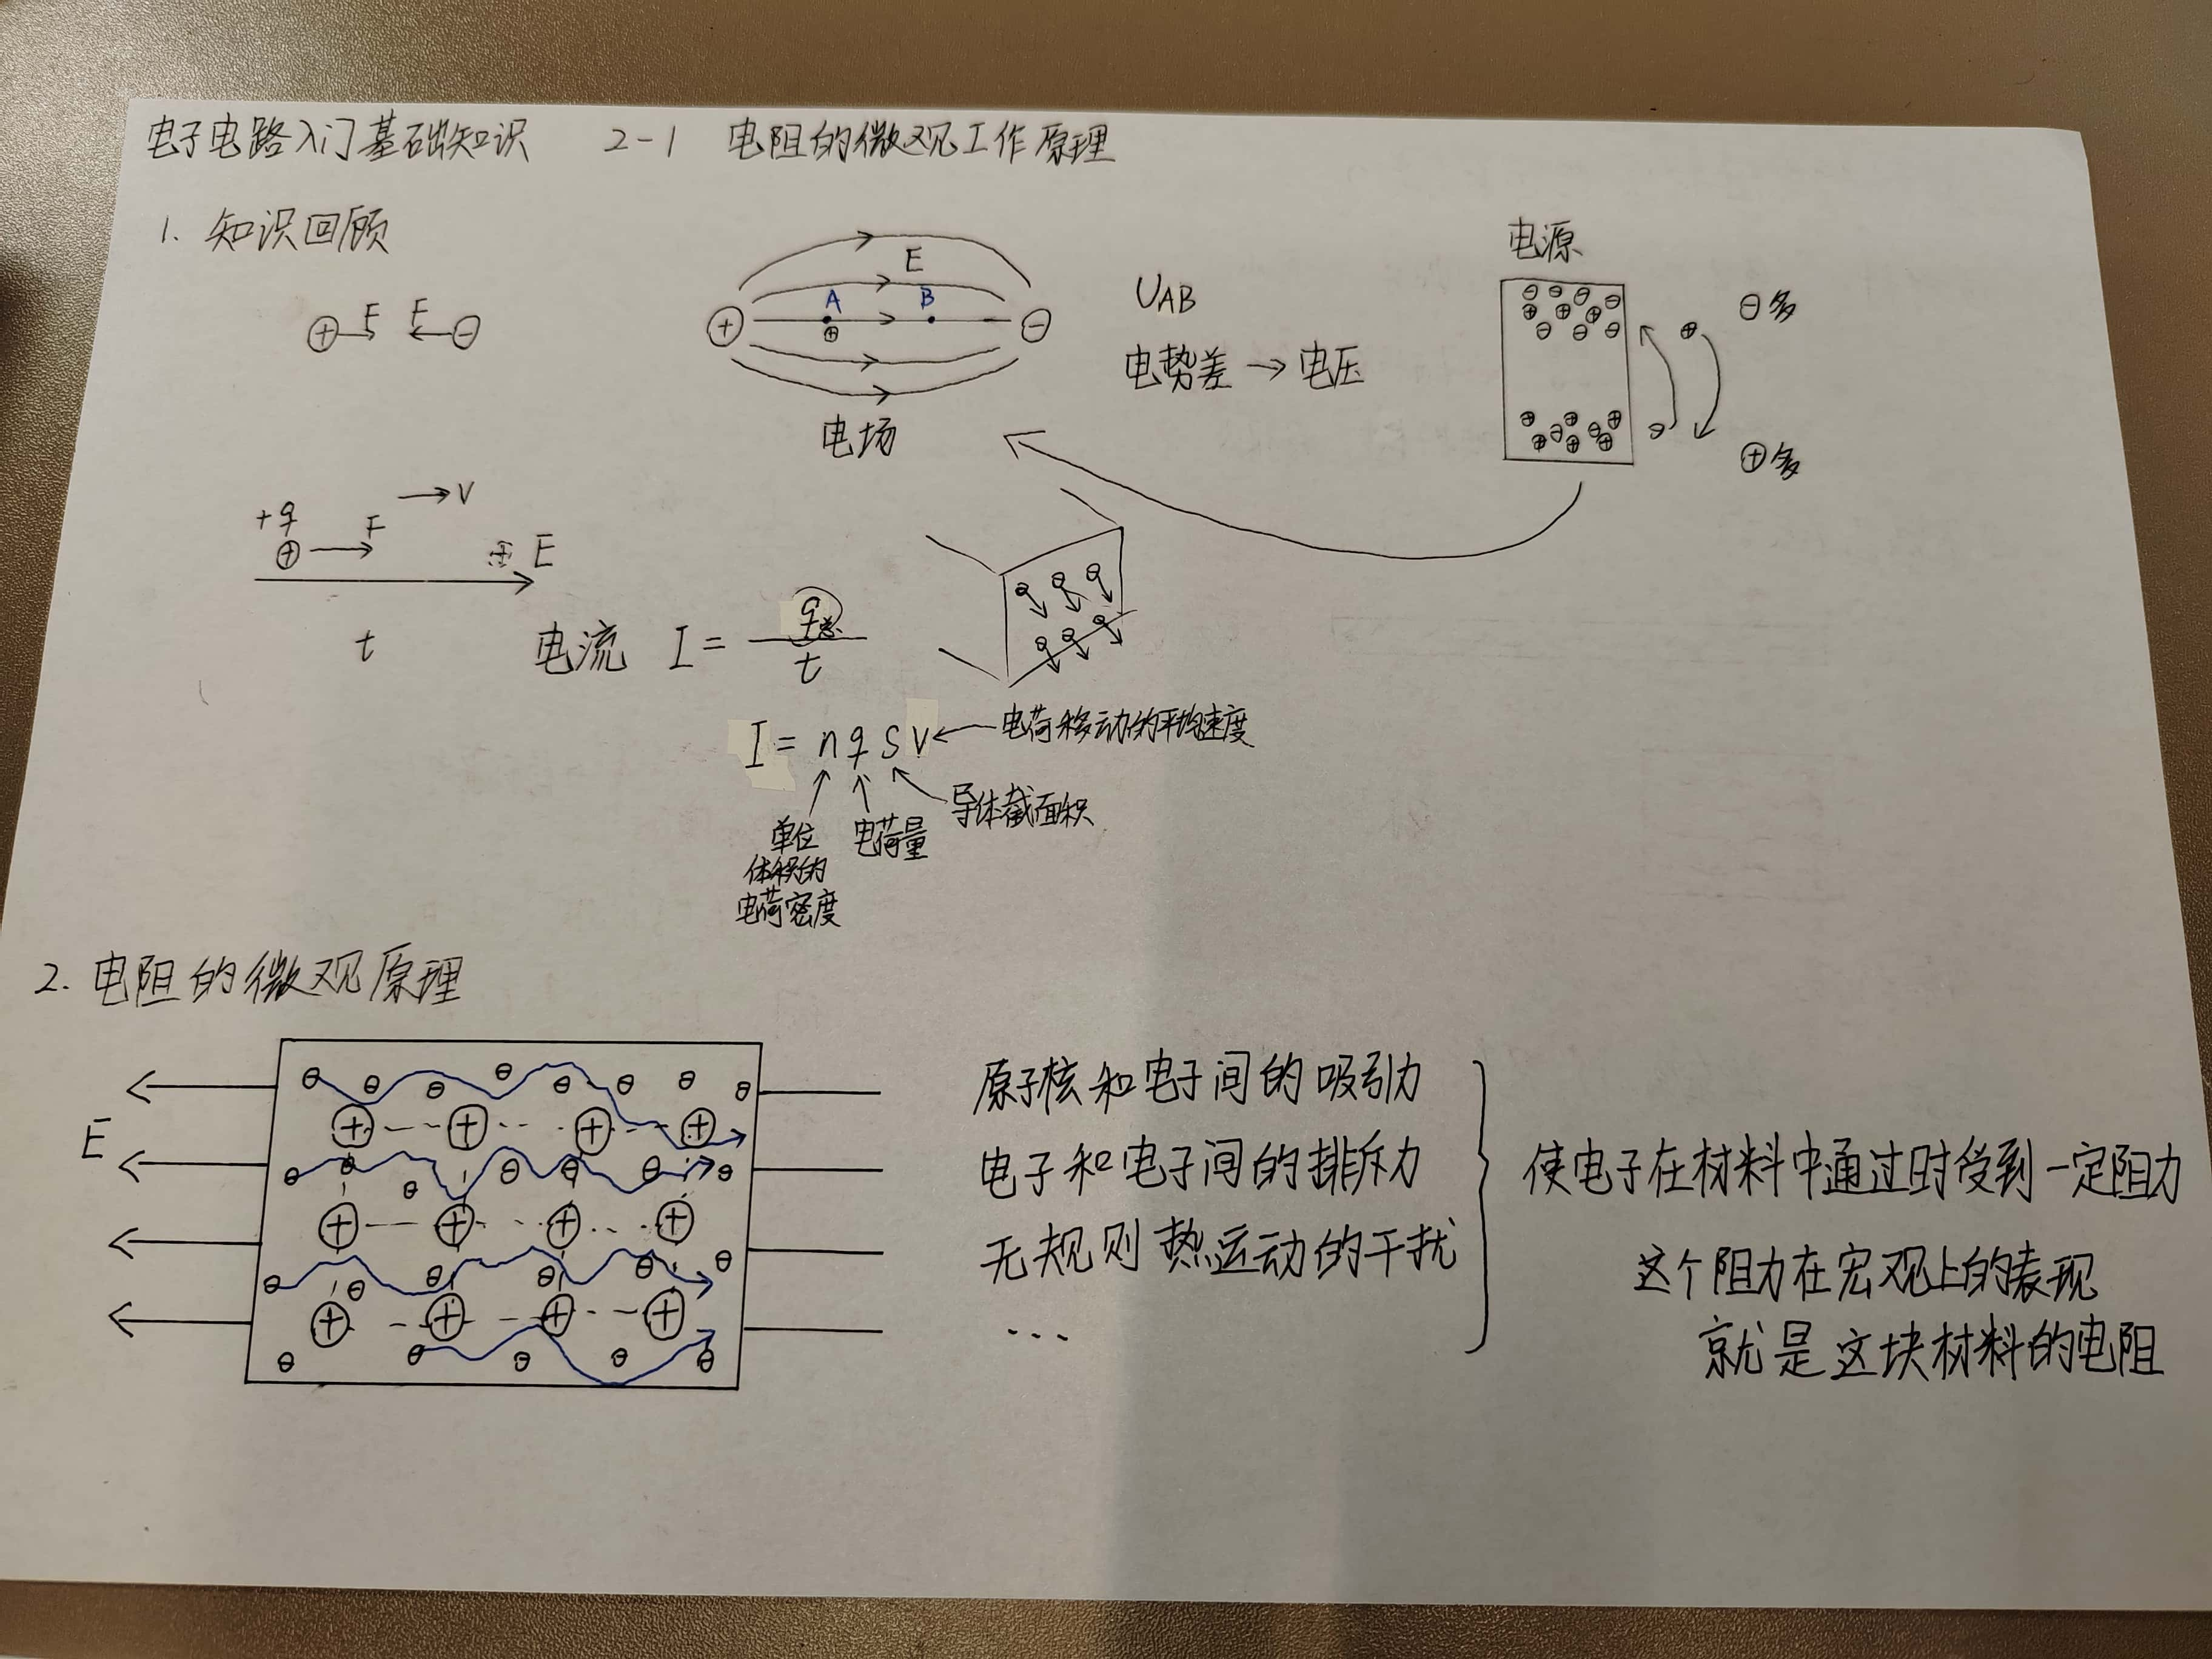 电子电路入门基础知识 2-1 电阻的微观工作原理
1. 知识回顾
F F
E
A B
电场
UAB
电势差 → 电压
电源
⊖多
⊕多
+q
F → V
E
t
电流 I = q总 / t
I = n q S V ← 电荷移动的平均速度
导体截面积
电荷量
单位
体积的
电荷密度
2. 电阻的微观原理
E
原子核和电子间的吸引力
电子和电子间的排斥力
无规则热运动的干扰
...
使电子在材料中通过时受到一定阻力
这个阻力在宏观上的表现
就是这块材料的电阻